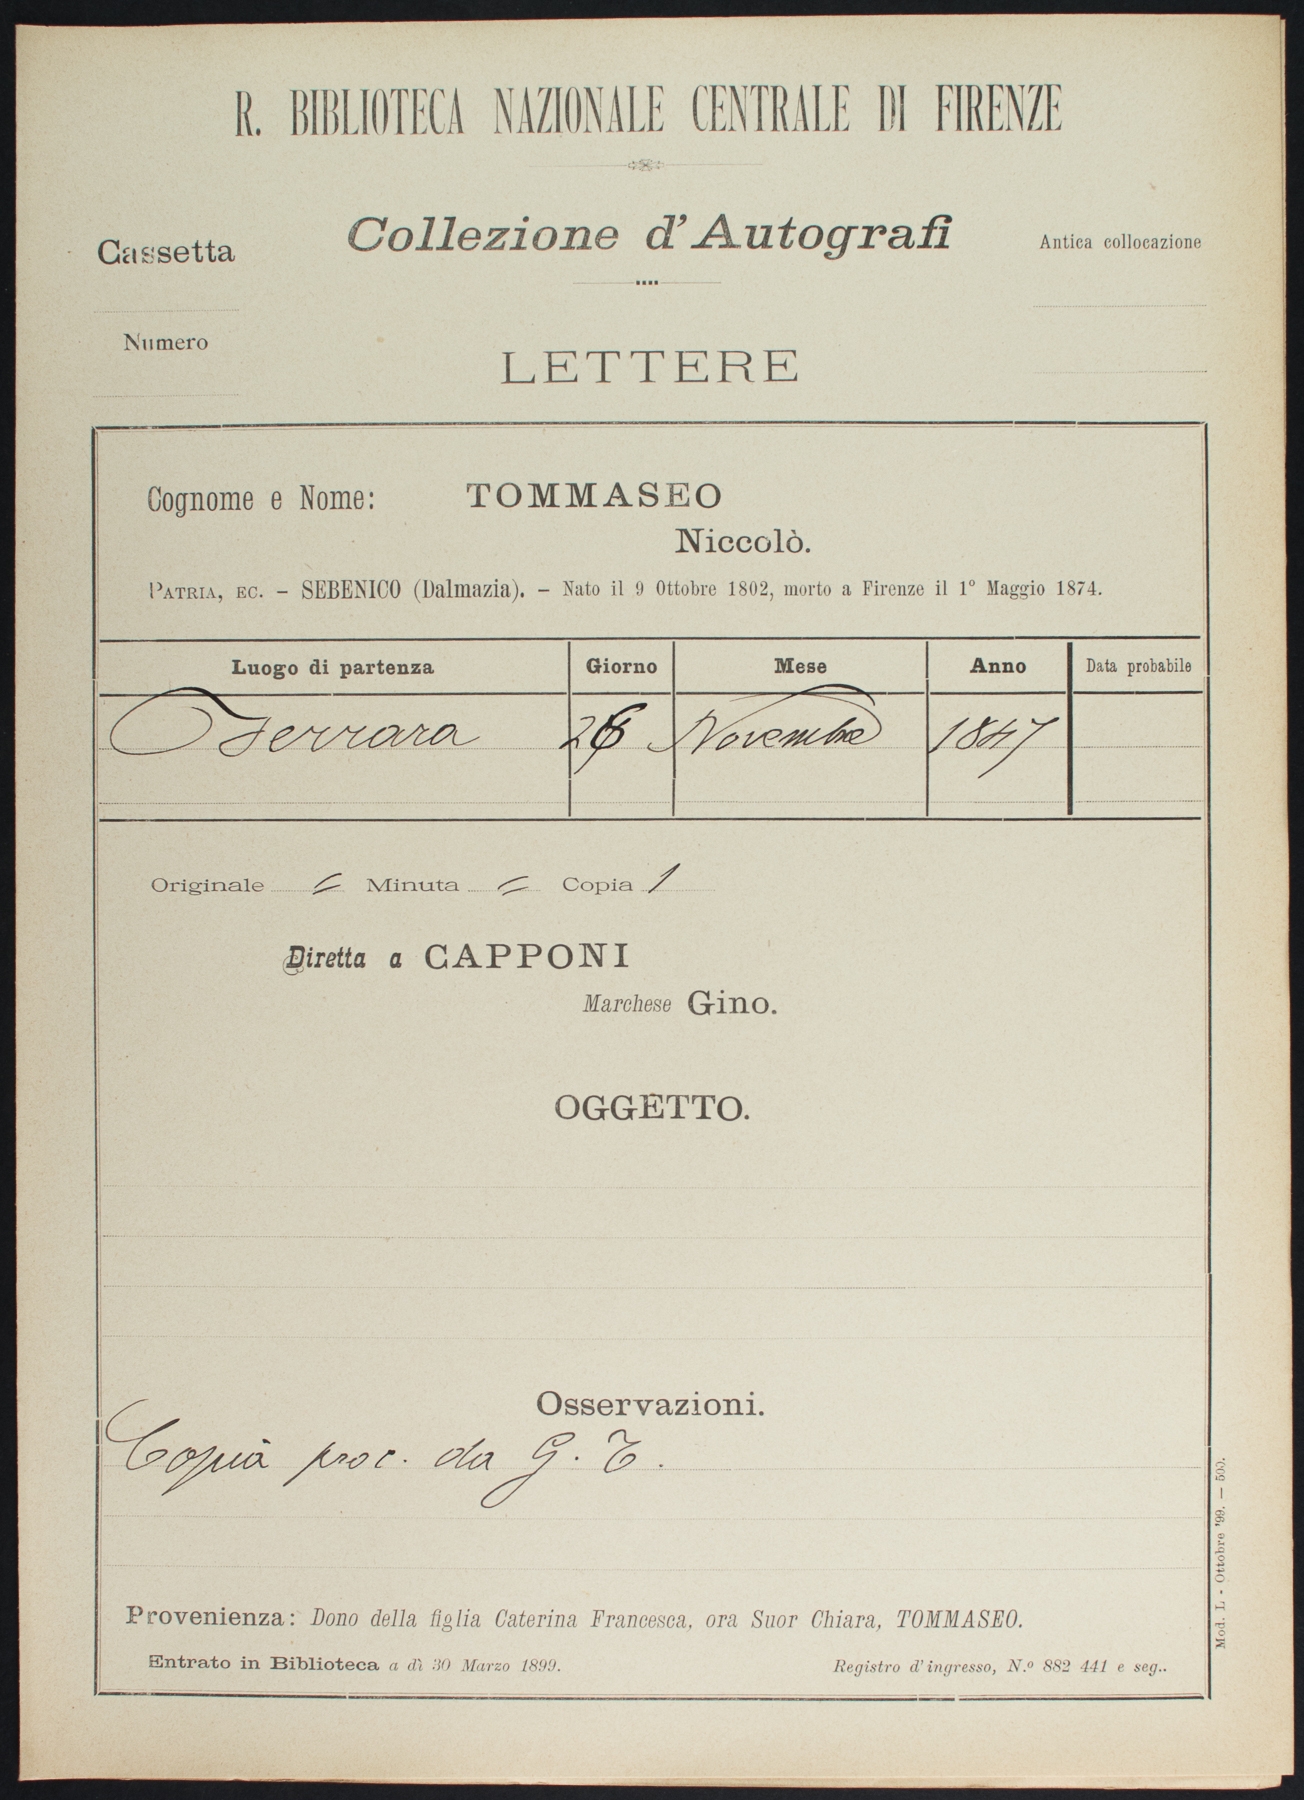 R. BIBLIOTECA NAZIONALE CENTRALE DI FIRENZE
Cassetta
Collezione d'Autografi
Antica collocazione
Numero
LETTERE
Cognome e Nome: TOMMASEO
Niccolò.
PATRIA, EC. – SEBENICO (Dalmazia). – Nato il 9 Ottobre 1802, morto a Firenze il 1° Maggio 1874.
Luogo di partenza Giorno Mese Anno Data probabile
Ferrara Novembre 1847
Originale = Minuta = Copia 1
Diretta a CAPPONI
Marchese Gino.
OGGETTO.
Osservazioni.
Copia proc. da G. T.
Provenienza: Dono della figlia Caterina Francesca, ora Suor Chiara, TOMMASEO.
Entrato in Biblioteca a dì 30 Marzo 1899. Registro d'ingresso, N.º 882 441 e seg..
Mod. L - Ottobre '99. — 500.